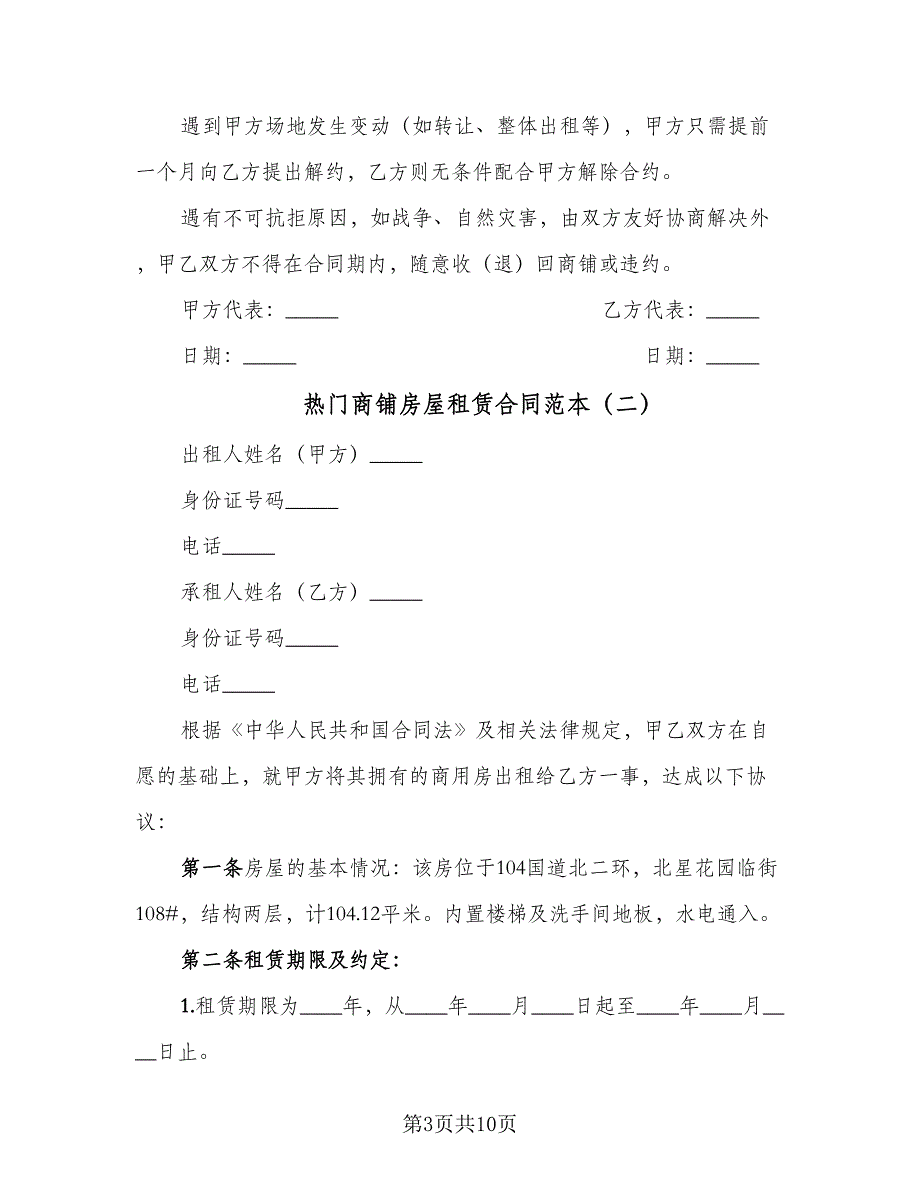 遇到甲方场地发生变动（如转让、整体出租等），甲方只需提前
一个月向乙方提出解约，乙方则无条件配合甲方解除合约。
遇有不可抗拒原因，如战争、自然灾害，由双方友好协商解决外
，甲乙双方不得在合同期内，随意收（退）回商铺或违约。
甲方代表：_____ 乙方代表：_____
日期：_____ 日期：_____
热门商铺房屋租赁合同范本（二）
出租人姓名（甲方）_____
身份证号码_____
电话_____
承租人姓名（乙方）_____
身份证号码_____
电话_____
根据《中华人民共和国合同法》及相关法律规定，甲乙双方在自
愿的基础上，就甲方将其拥有的商用房出租给乙方一事，达成以下协
议：
第一条房屋的基本情况：该房位于104国道北二环，北星花园临街
108#，结构两层，计104.12平米。内置楼梯及洗手间地板，水电通入。
第二条租赁期限及约定：
1.租赁期限为____年，从____年____月____日起至____年____月__
__日止。
第3页共10页